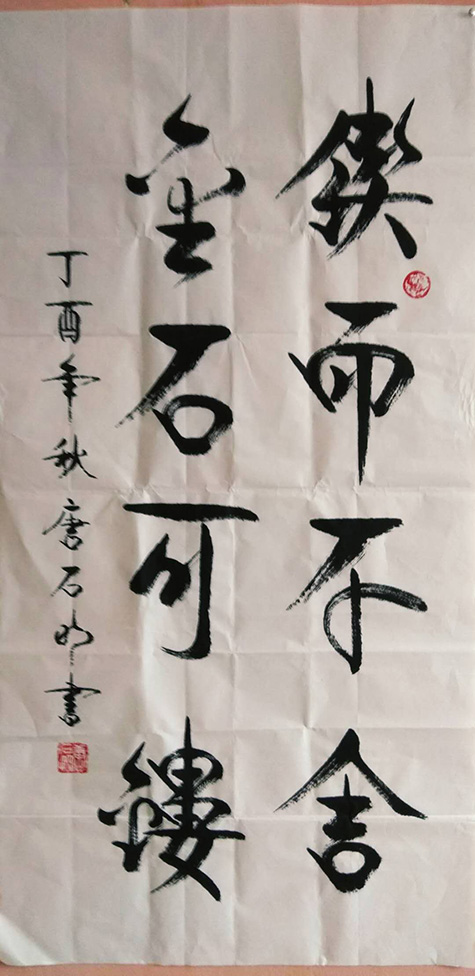 锲而不舍
金石可镂
丁酉年秋唐石卿書